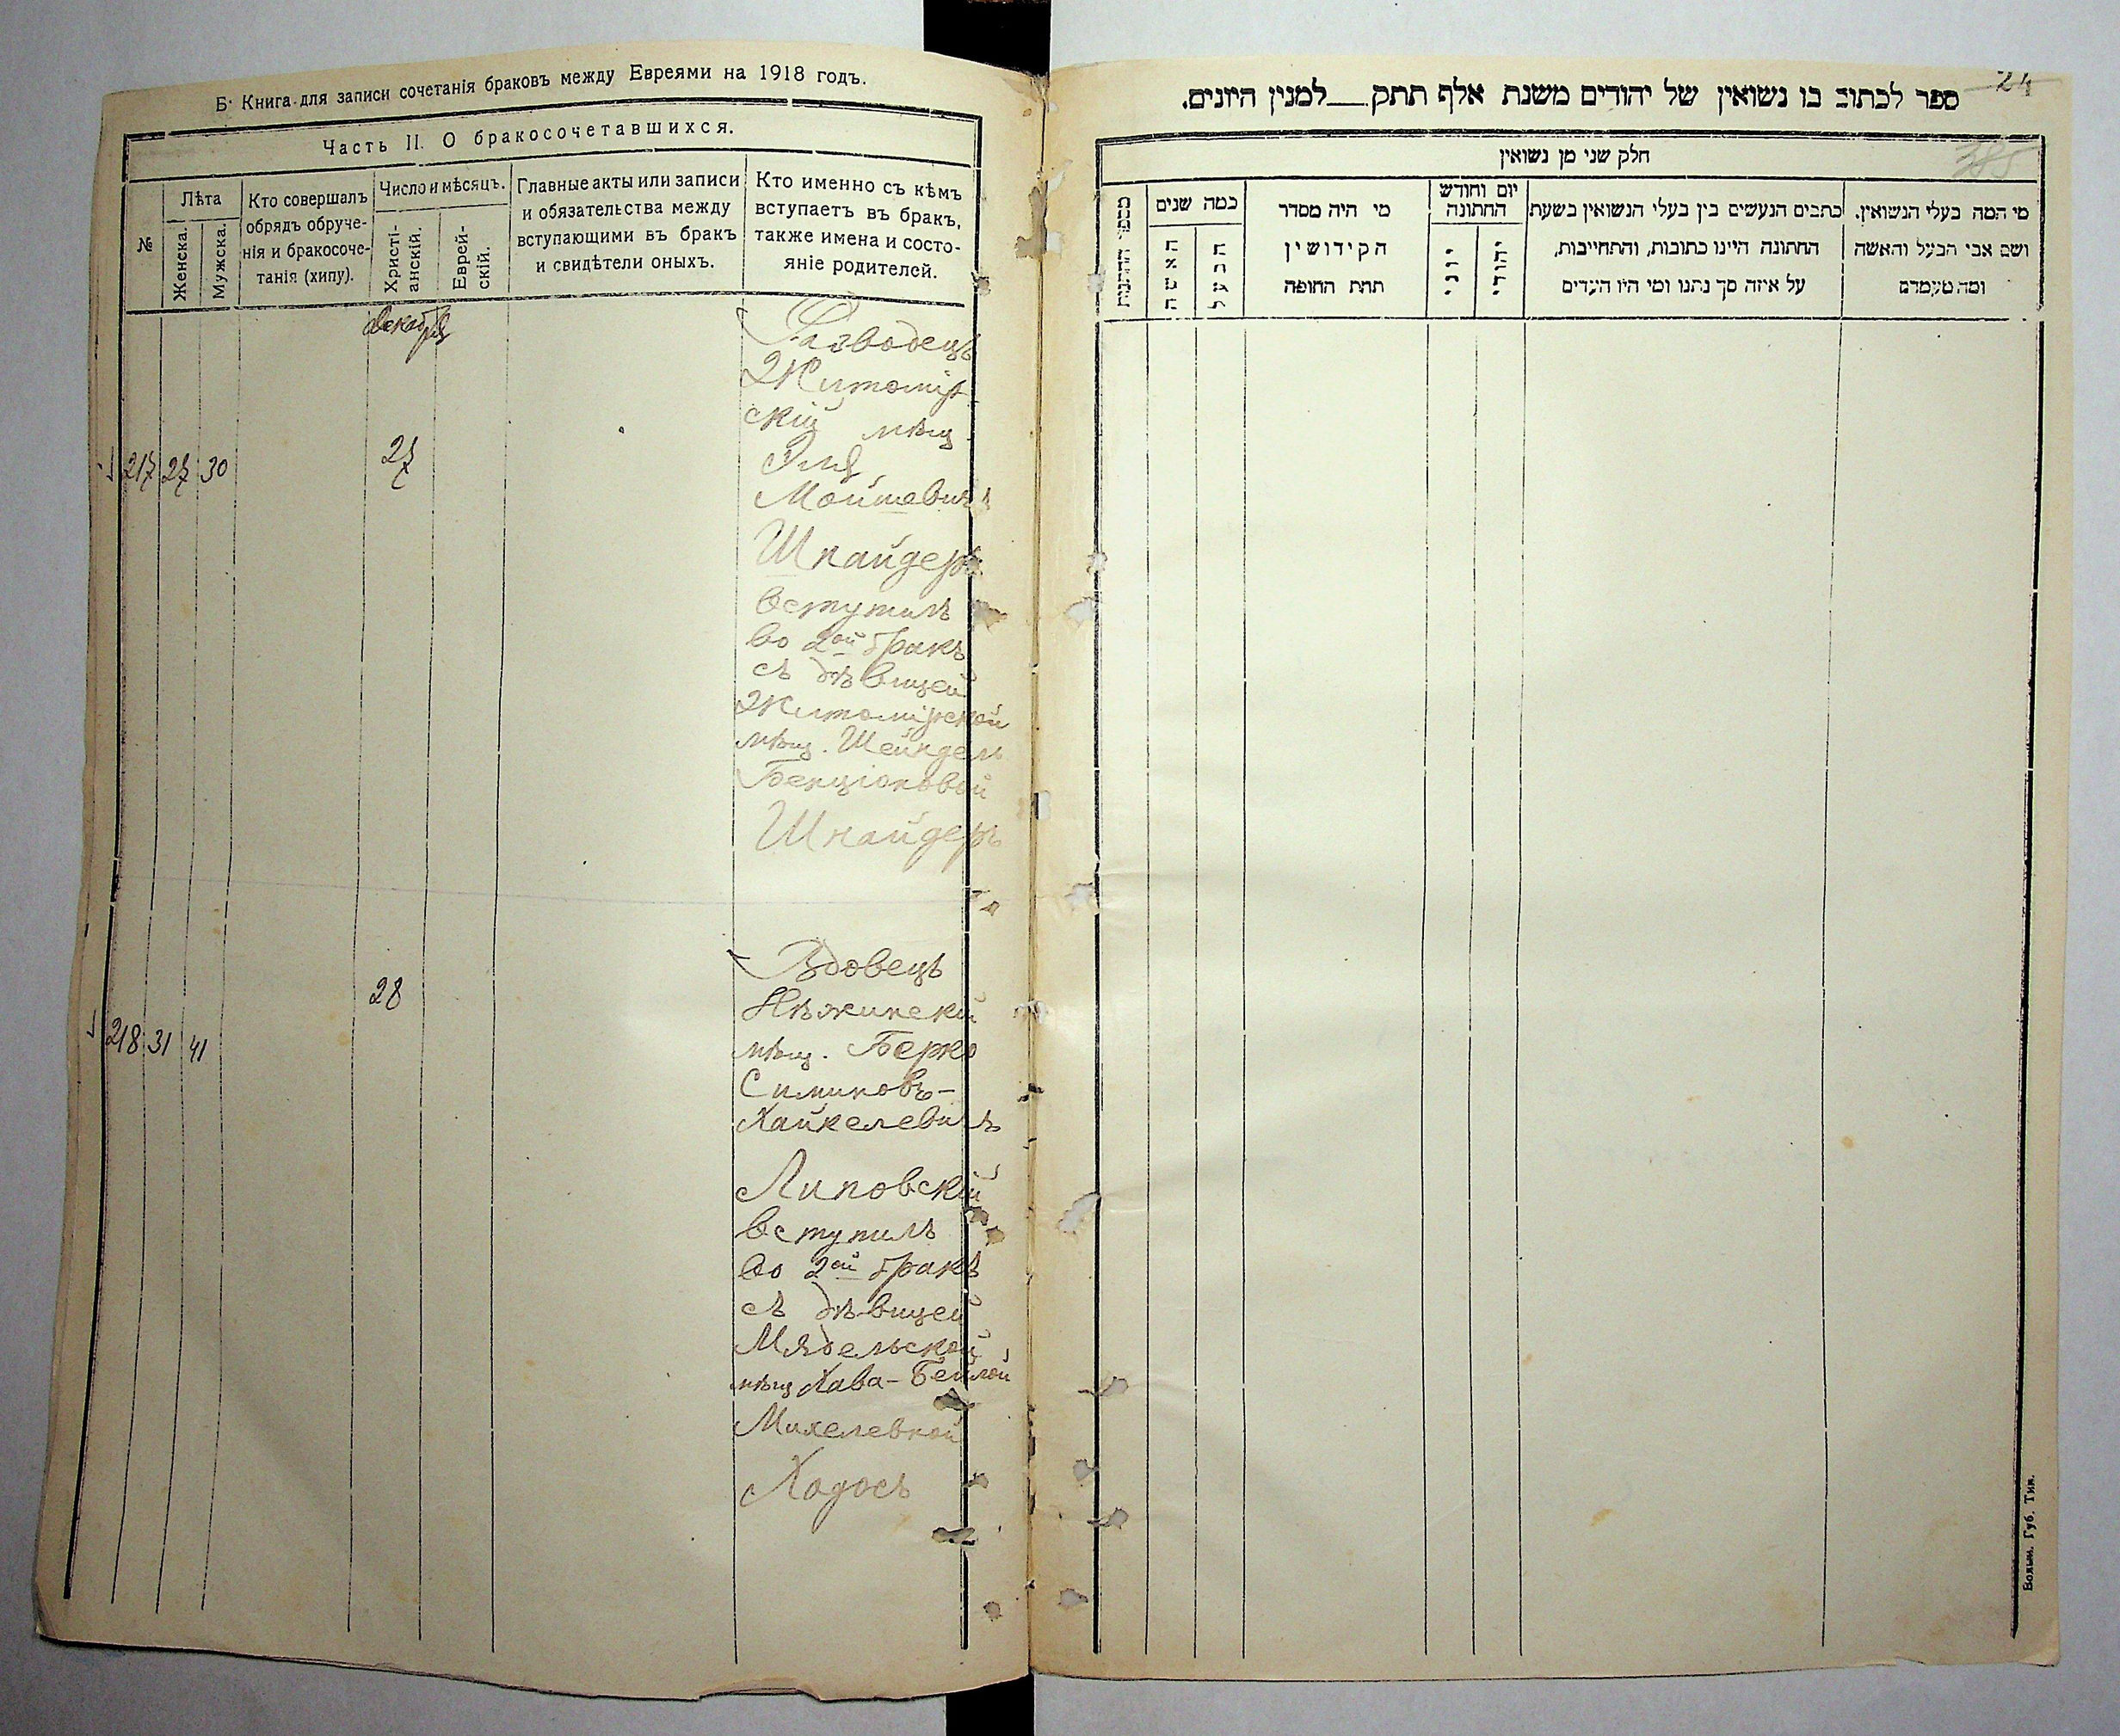 Б. Книга для записи сочетанія браковъ между Евреями на 1918 годъ.
Часть II. О бракосочетавшихся.
№
Лѣта
Женска.
Мужска.
Кто совершалъ
обрядъ обруче-
нія и бракосоче-
танія (хипу).
Число и мѣсяцъ.
Христі-
анскій.
Еврей-
скій.
Главные акты или записи
и обязательства между
вступающими въ бракъ
и свидѣтели оныхъ.
Кто именно съ кѣмъ
вступаетъ въ бракъ,
также имена и состо-
яніе родителей.
декабрь
217 27 30 27
Разводецъ
Житомір
скій мѣщ.
Мойшевичъ
Шнайдеръ
вступилъ
во 2ой бракъ
съ дѣвицей
Житомірской
мѣщ. Шейндель
Бенціоновой
Шнайдеръ
218 31 41 28
Вдовецъ
Нѣжинскій
мѣщ. Берко
Симиновъ-
Хайкелевичъ
Липовскій
вступилъ
во 2ой бракъ
съ дѣвицей
Мядельской
мѣщ Хава-Бейлой
Михелевной
Ходосъ
24
385
ספר לכתוב בו נשואין של יהודים משנת אלף תתק__למנין היונים.
חלק שני מן נשואין
מי המה בעלי הנשואין.
ושם אבי הבעל והאשה
ומה מעמדם
כתבים הנעשים בין בעלי הנשואין בשעת
החתונה היינו כתובות, והתחייבות,
על איזה סך נתנו ומי היו העדים
יום וחודש
החתונה
יהודי
יוני
מי היה מסדר
הקידושין
תחת החופה
כמה שנים
הבעל
האשה
מספר החתונות
Волын. Губ. Тип.